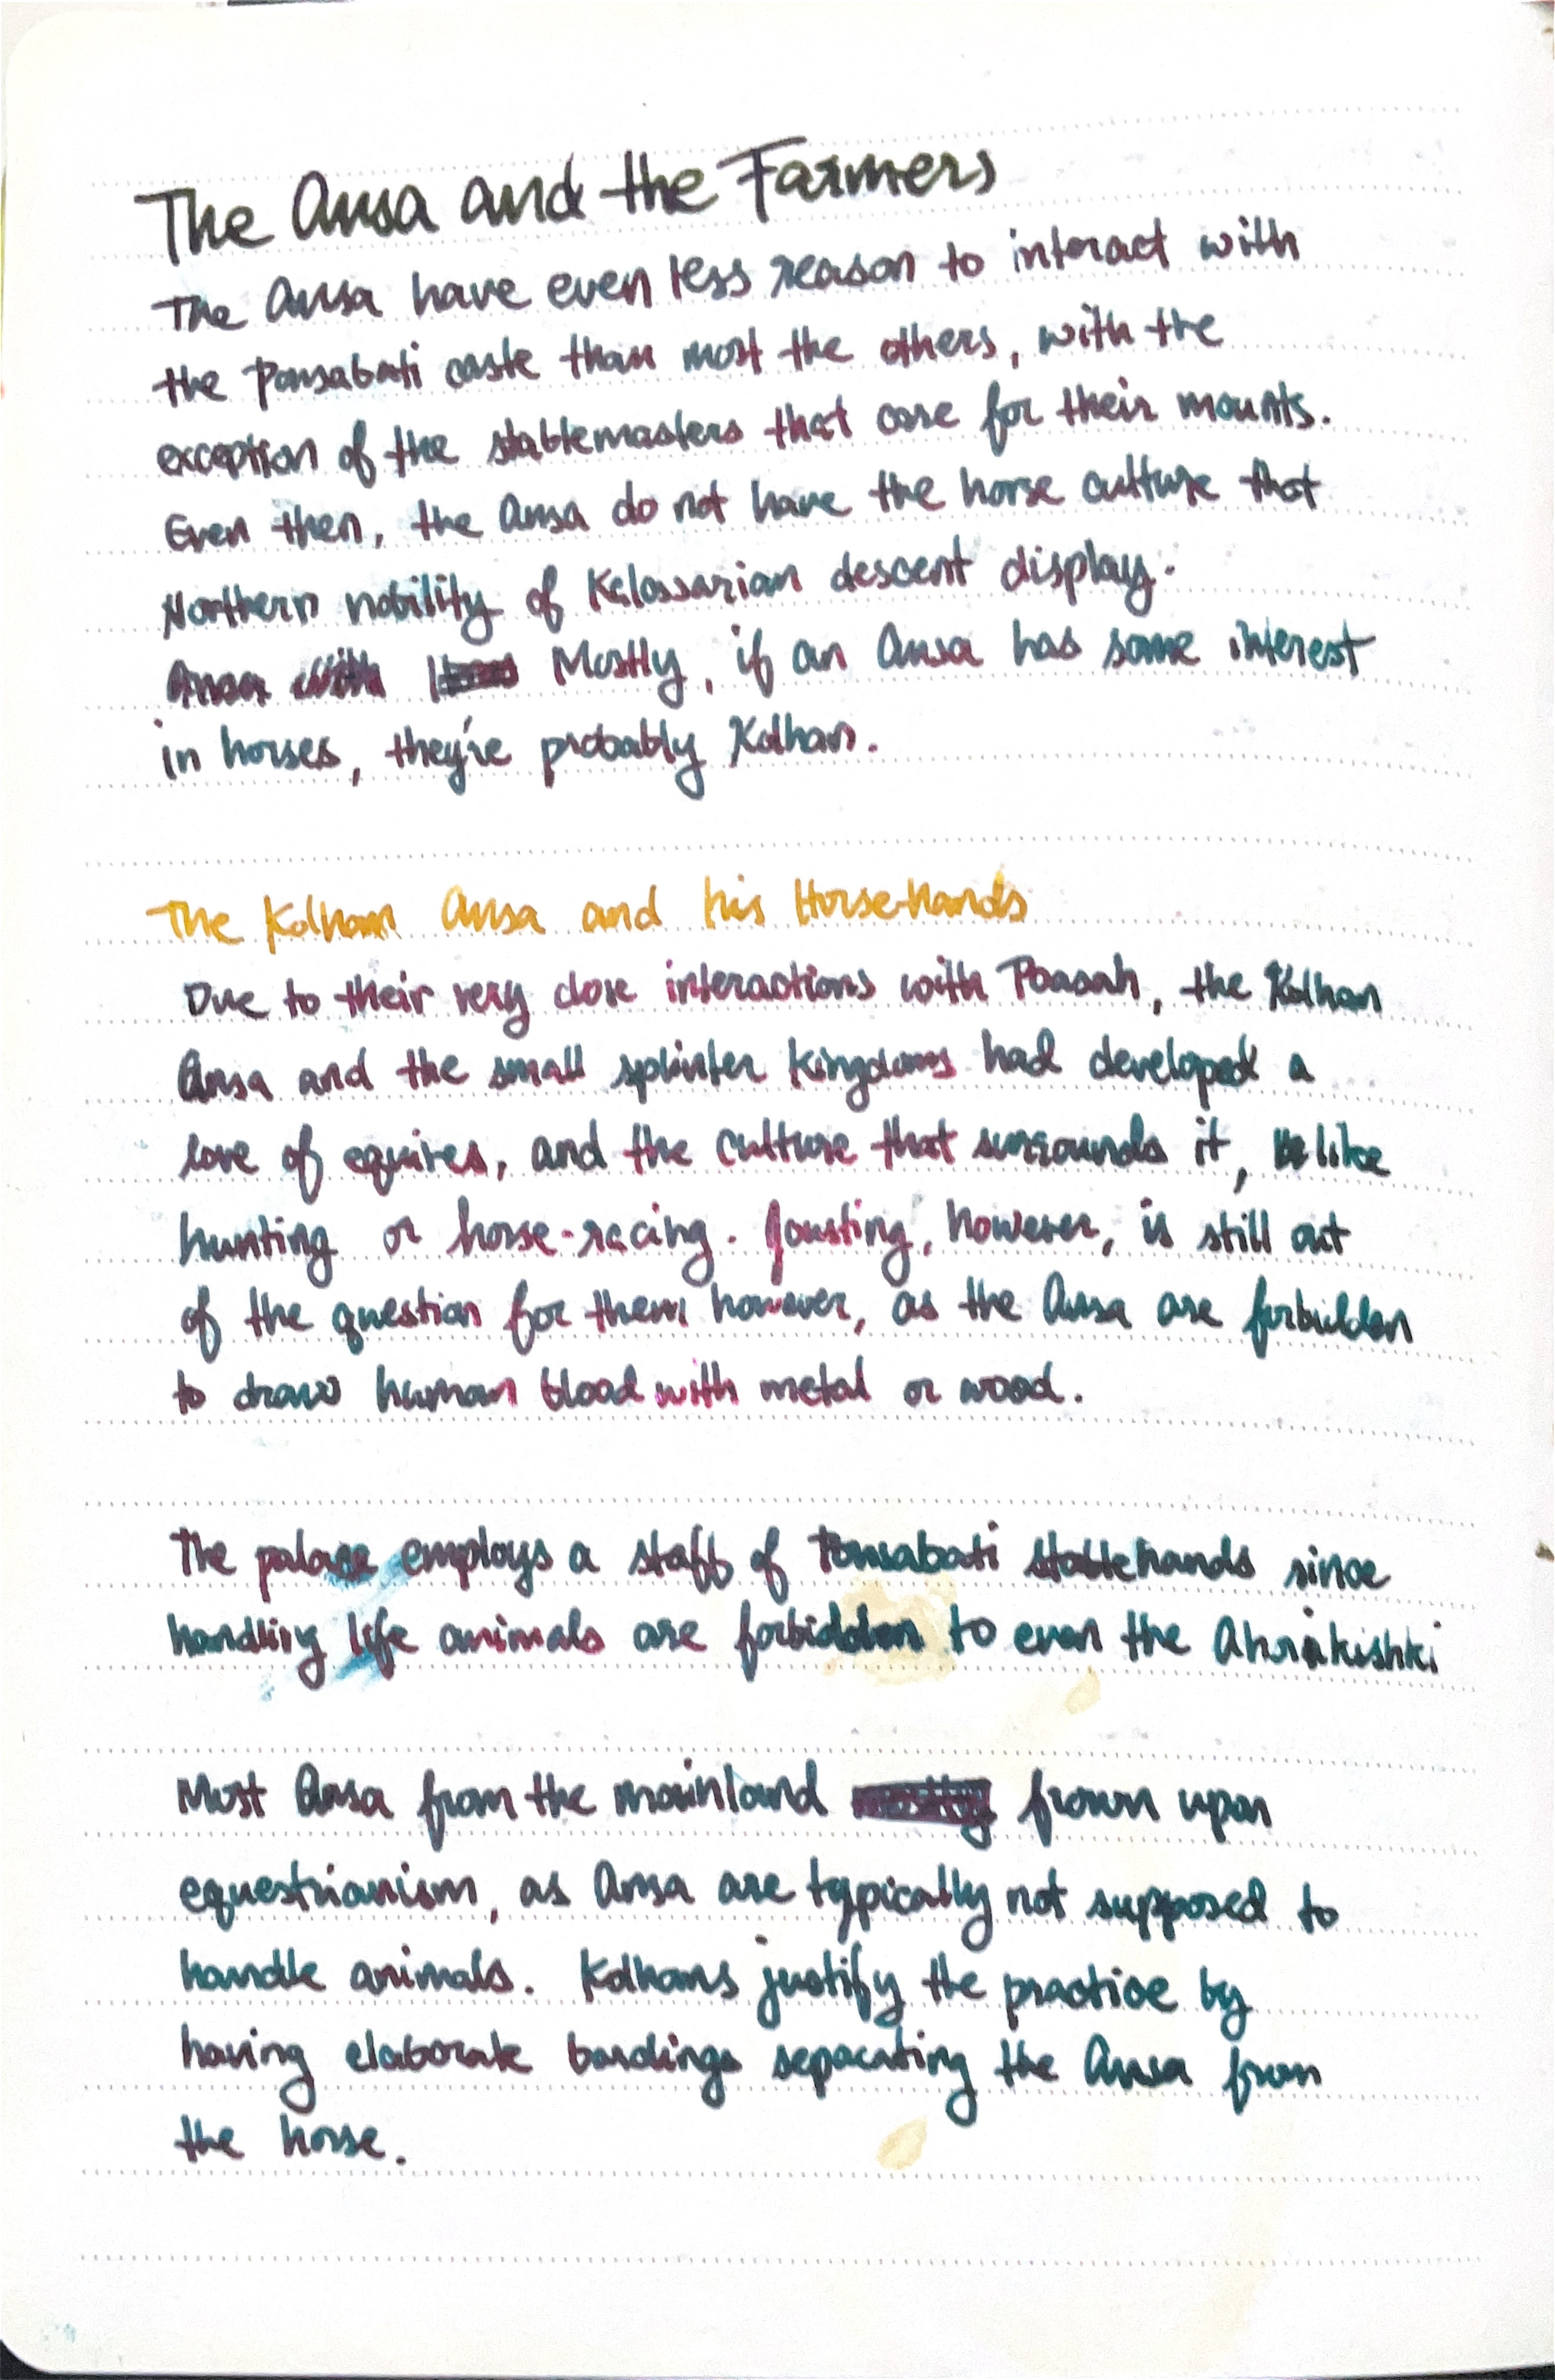 The Ansa and the Farmers
The Ansa have even less reason to interact with
the Pansabati caste than most the others, with the
exception of the stablemasters that care for their mounts.
Even then, the Ansa do not have the horse culture that
Northern nobility of Kelossarian descent display.
Mostly, if an Ansa has some interest
in horses, they're probably Kolhan.
The Kolham Ansa and his Horse-hands
Due to their very close interactions with Paasah, the Kolhan
Ansa and the small splinter kingdoms had developed a
love of equines, and the culture that surrounds it, like
hunting or horse-racing. Jousting, however, is still out
of the question for them however, as the Ansa are forbidden
to draw human blood with metal or wood.
The palace employs a staff of Pansabati stablehands since
handling life animals are forbidden to even the Ahriakishki
Most Ansa from the mainland frown upon
equestrianism, as Ansa are typically not supposed to
handle animals. Kolhans justify the practice by
having elaborate bardings separating the Ansa from
the horse.